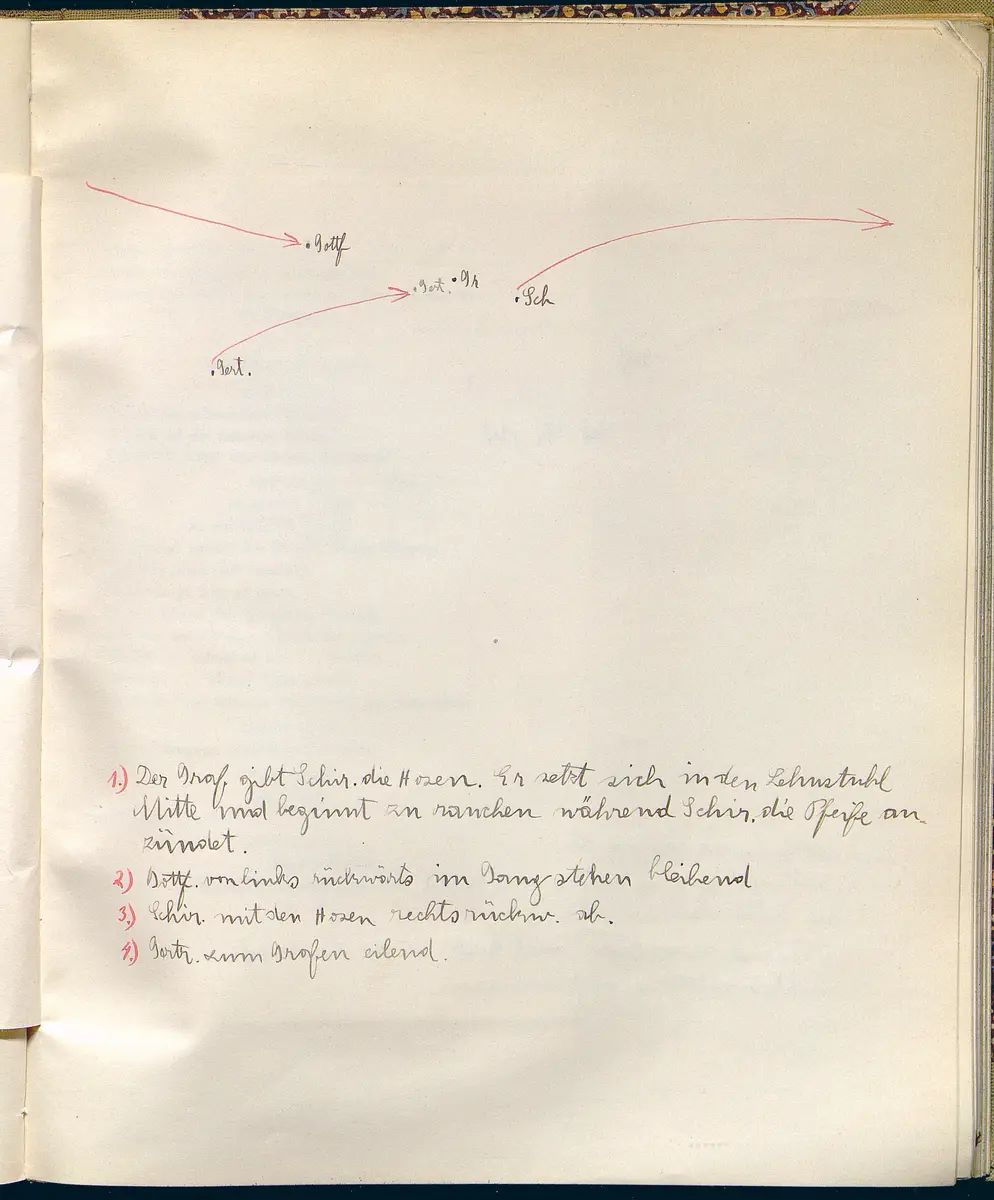 . Gottf
. Gert. . Gr
. Sch
. Gert.
1.) Der Graf gibt Schir. die Hosen. Er setzt sich in den Lehnstuhl
Mitte und beginnt zu rauchen während Schir. die Pfeife an-
zündet.
2) Gottf. von links rückwärts im Gang stehen bleibend
3.) Schir. mit den Hosen rechts rückw. ab.
4.) Gertr. zum Grafen eilend.